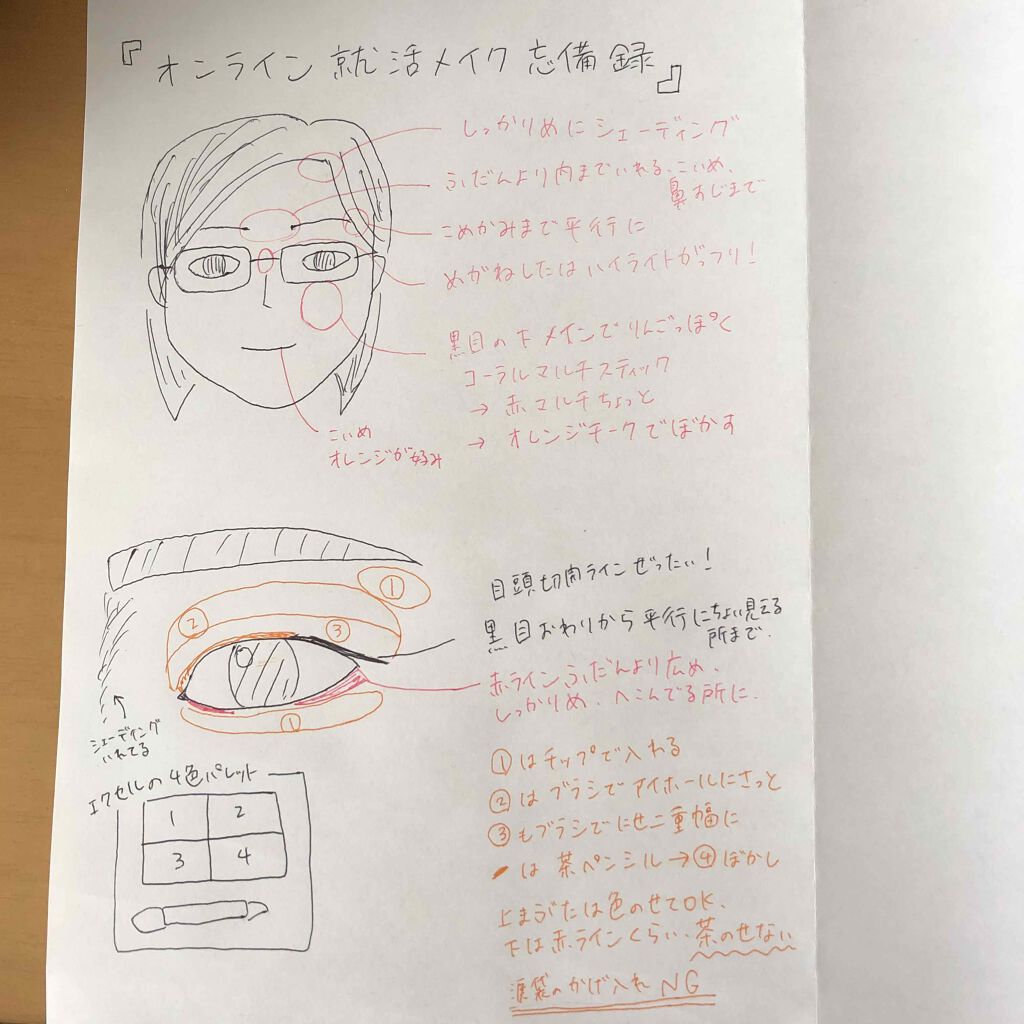 『オンライン就活メイク忘備録』
しっかりめにシェーディング
ふだんより内までいれる、こいめ、
鼻すじまで
こめかみまで平行に
めがねしたはハイライトがっつり!
黒目の下メインでりんごっぽく
コーラルマルチスティック
→ 赤マルチちょっと
→ オレンジチークでぼかす
こいめ
オレンジが好み
目頭切開ラインぜったい!
黒目おわりから平行にちょい見える
所まで.
赤ライン ふだんより広め、
しっかりめ、へこんでる所に.
①
②
③
①
シェーディング
いれてる
エクセルの4色パレット
1 2
3 4
①はチップで入れる
②はブラシでアイホールにさっと
③もブラシでにせ二重幅に
は 茶ペンシル→④ぼかし
上まぶたは色のせてOK、
下は赤ラインくらい、茶のせない
涙袋のかげ入れ NG